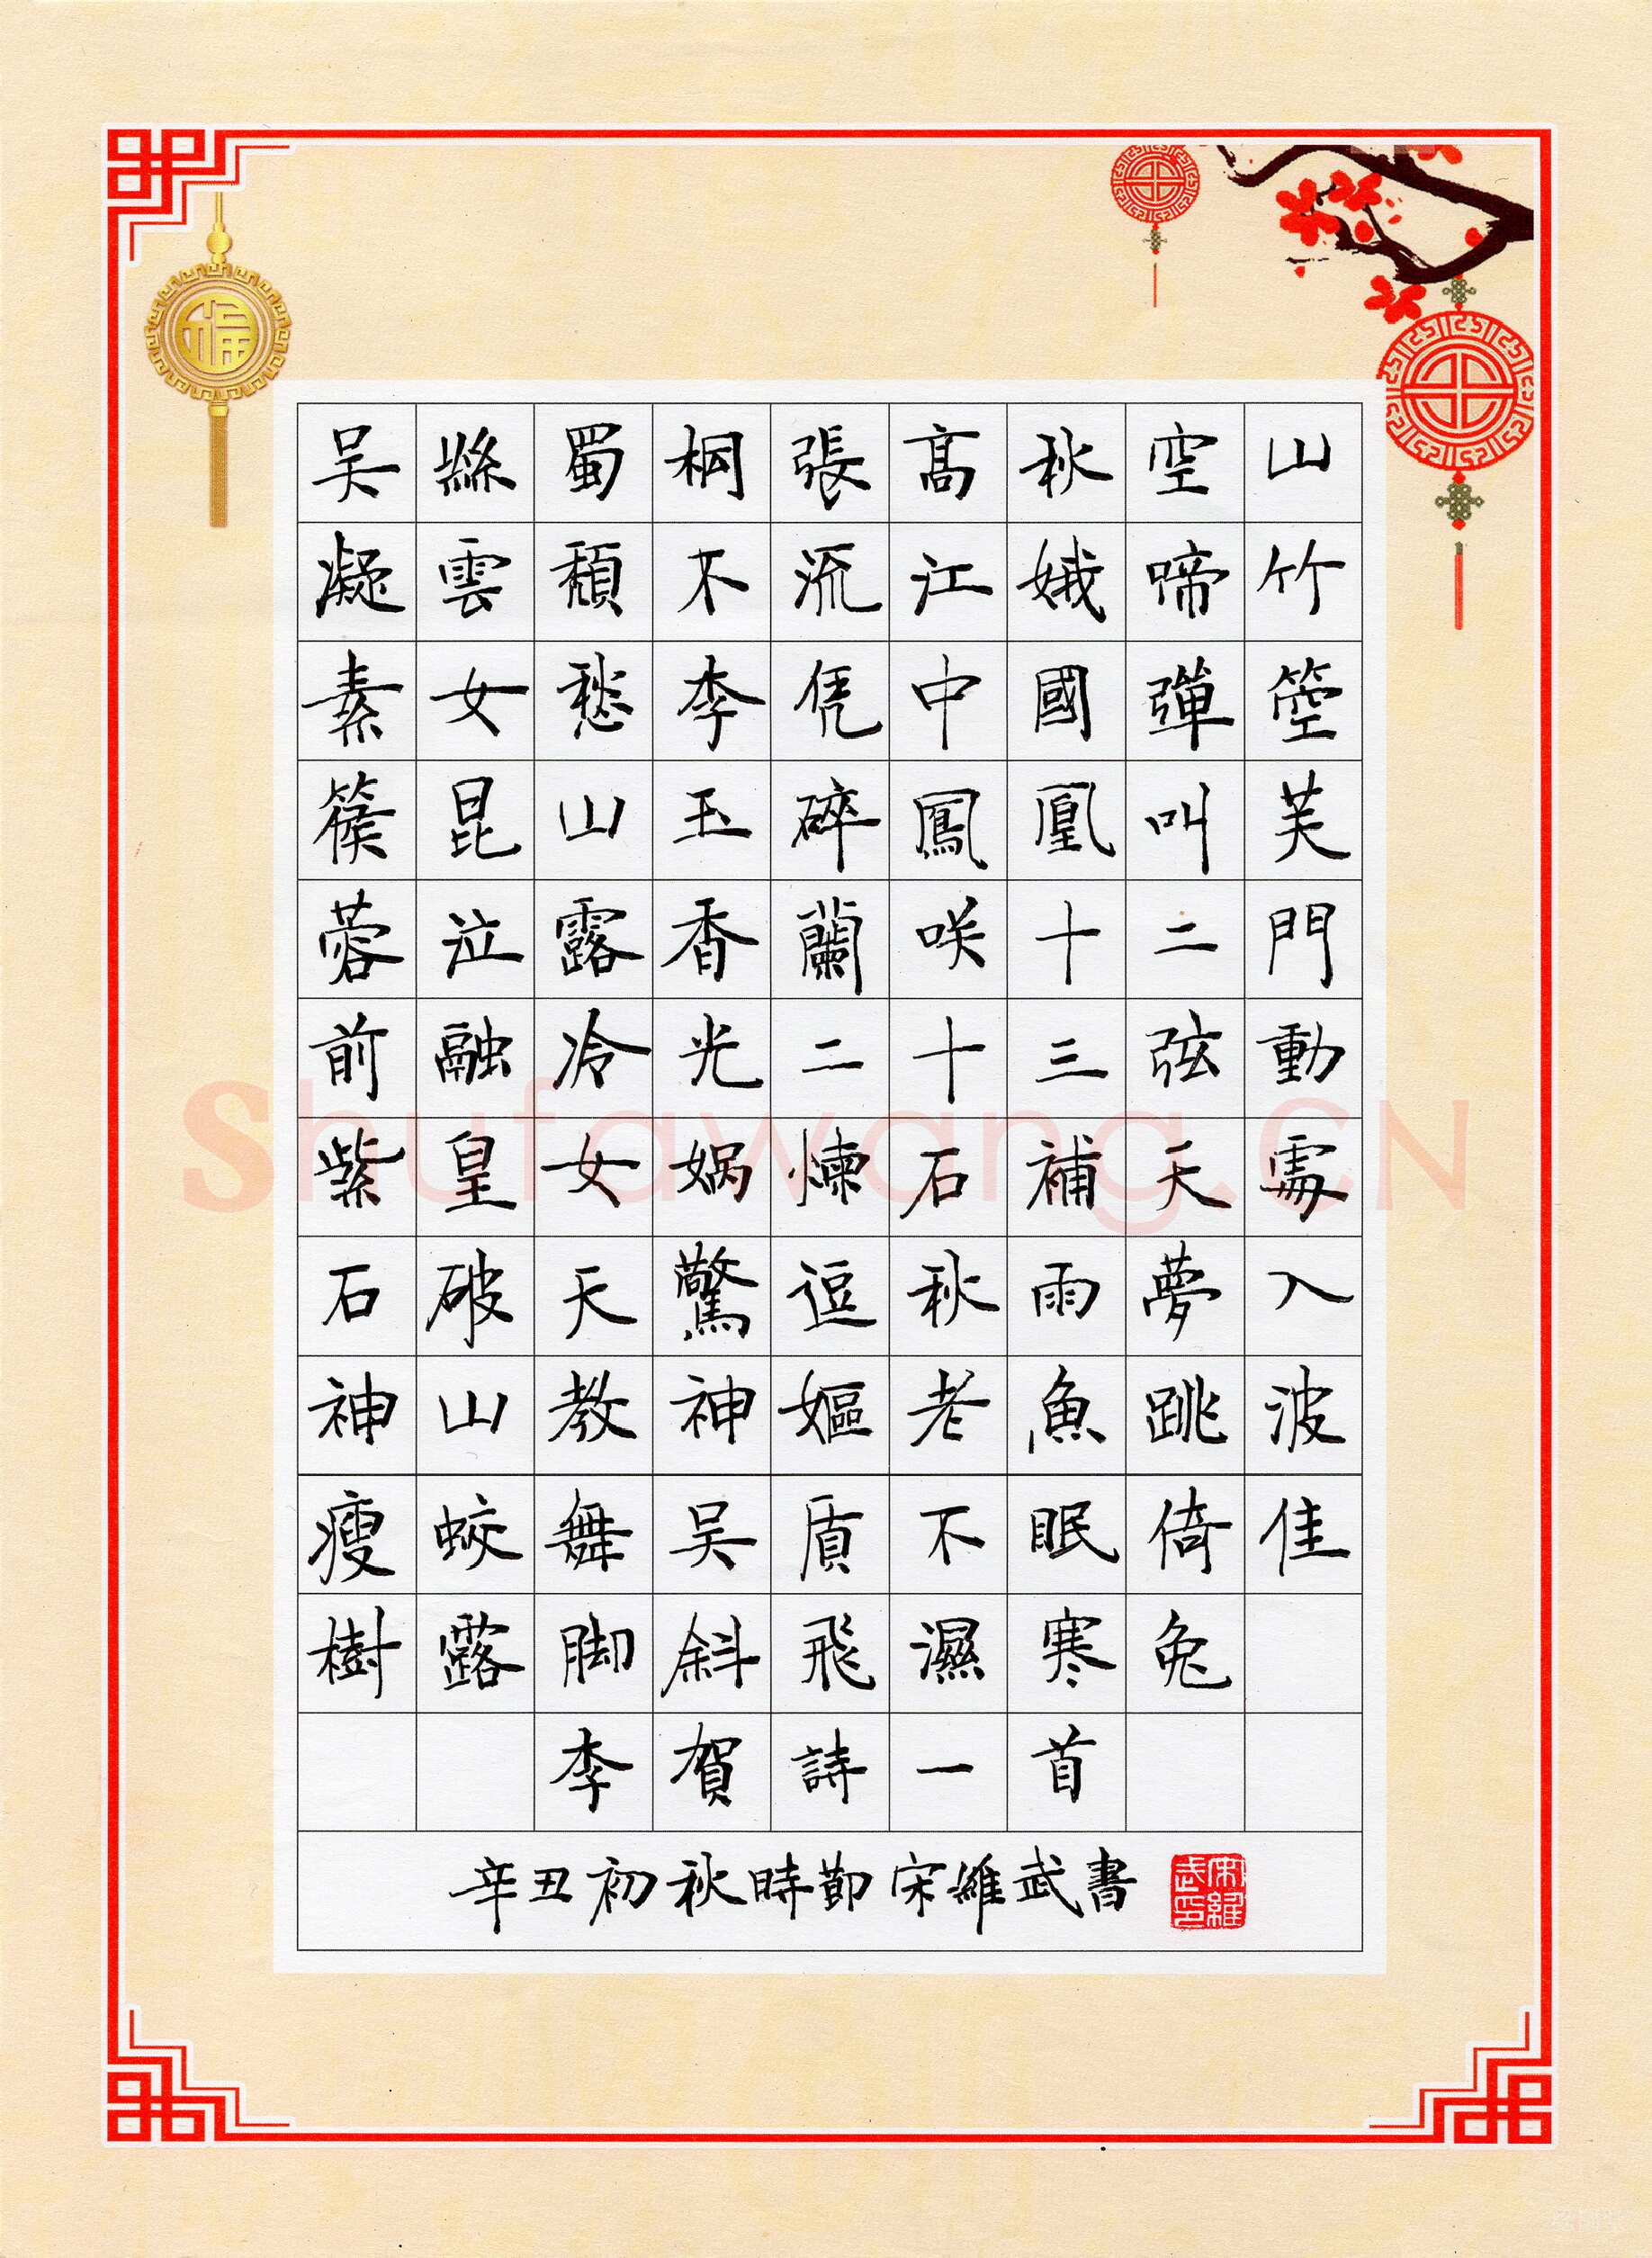 福
吴絲蜀桐張髙秋空山
凝雲頹不流江娥啼竹
素女愁李凭中國彈箜
篌昆山玉碎鳳凰叫芙
蓉泣露香蘭咲十二門
前融冷光二十三弦動
紫皇女娲煉石補天處
石破天驚逗秋雨夢入
神山教神嫗老魚跳波
瘦蛟舞吴貭不眠倚佳
樹露脚斜飛濕寒兔
李賀詩一首
辛丑初秋時節宋維武書
宋維武印
Shufawang.CN